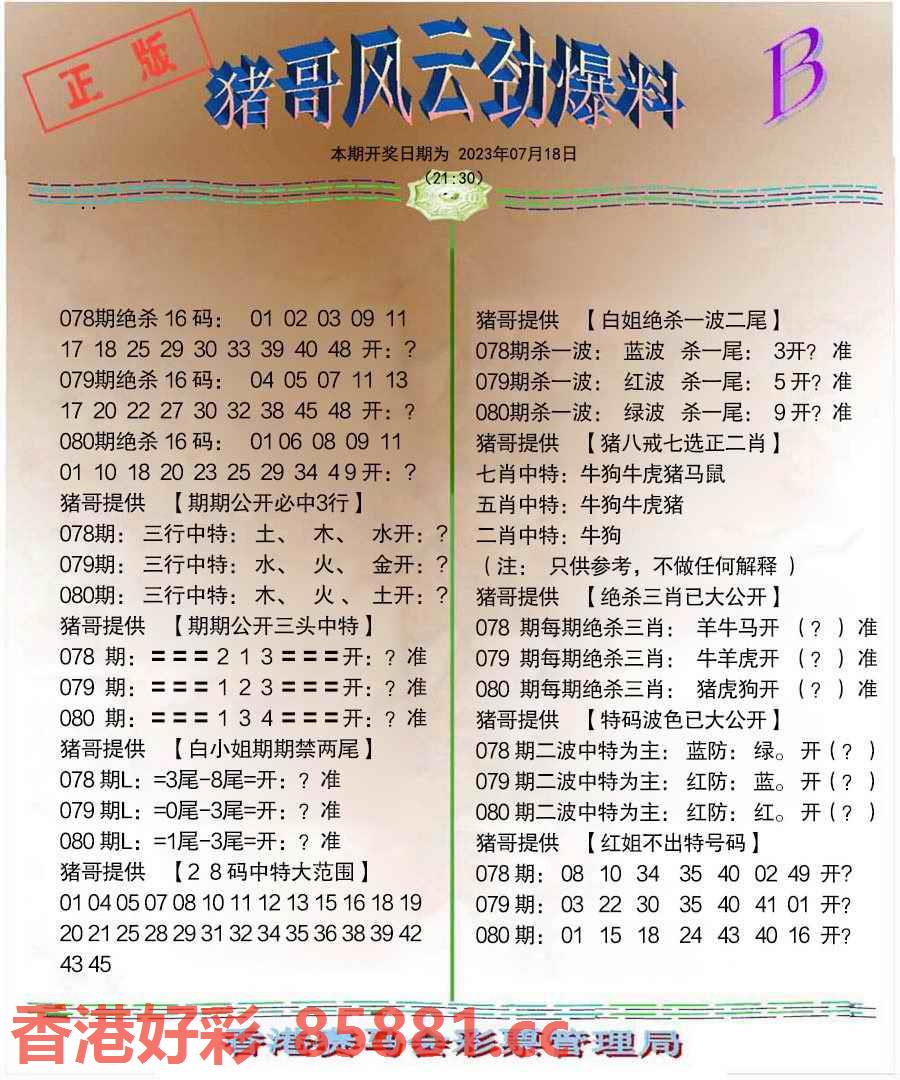 正版
猪哥风云劲爆料
B
本期开奖日期为 2023年07月18日
(21:30)
078期绝杀 16 码： 01 02 03 09 11
17 18 25 29 30 33 39 40 48 开：?
079期绝杀 16 码： 04 05 07 11 13
17 20 22 27 30 32 38 45 48 开：?
080期绝杀 16 码： 01 06 08 09 11
01 10 18 20 23 25 29 34 4 9 开：?
猪哥提供 【期期公开必中3行】
078期： 三行中特： 土、 木、 水开：?
079期： 三行中特： 水、 火、 金开：?
080期： 三行中特： 木、 火、 土开：?
猪哥提供 【期期公开三头中特】
078 期：＝＝＝ 2 1 3 ＝＝＝开：? 准
079 期：＝＝＝ 1 2 3 ＝＝＝开：? 准
080 期：＝＝＝ 1 3 4 ＝＝＝开：? 准
猪哥提供 【白小姐期期禁两尾】
078 期L：=3尾-8尾=开：? 准
079 期L：=0尾-3尾=开：? 准
080 期L：=1尾-3尾=开：? 准
猪哥提供 【2 8 码中特大范围】
01 04 05 07 08 10 11 12 13 15 16 18 19
20 21 25 28 29 31 32 34 35 36 38 39 42
43 45
猪哥提供 【白姐绝杀一波二尾】
078期杀一波： 蓝波 杀一尾： 3开? 准
079期杀一波： 红波 杀一尾： 5 开? 准
080期杀一波： 绿波 杀一尾： 9 开? 准
猪哥提供 【猪八戒七选正二肖】
七肖中特：牛狗牛虎猪马鼠
五肖中特：牛狗牛虎猪
二肖中特：牛狗
（注： 只供参考，不做任何解释 ）
猪哥提供 【绝杀三肖已大公开】
078 期每期绝杀三肖： 羊牛马开 （? ）准
079 期每期绝杀三肖： 牛羊虎开 （? ）准
080 期每期绝杀三肖： 猪虎狗开 （? ）准
猪哥提供 【特码波色已大公开】
078 期二波中特为主：蓝防：绿。开（? ）
079 期二波中特为主：红防：蓝。开（? ）
080 期二波中特为主：红防：红。开（? ）
猪哥提供 【红姐不出特号码】
078 期： 08 10 34 35 40 02 49 开?
079 期： 03 22 30 35 40 41 01 开?
080 期： 01 15 18 24 43 40 16 开?
香港好彩 85881.cc
香港赛马会彩票管理局